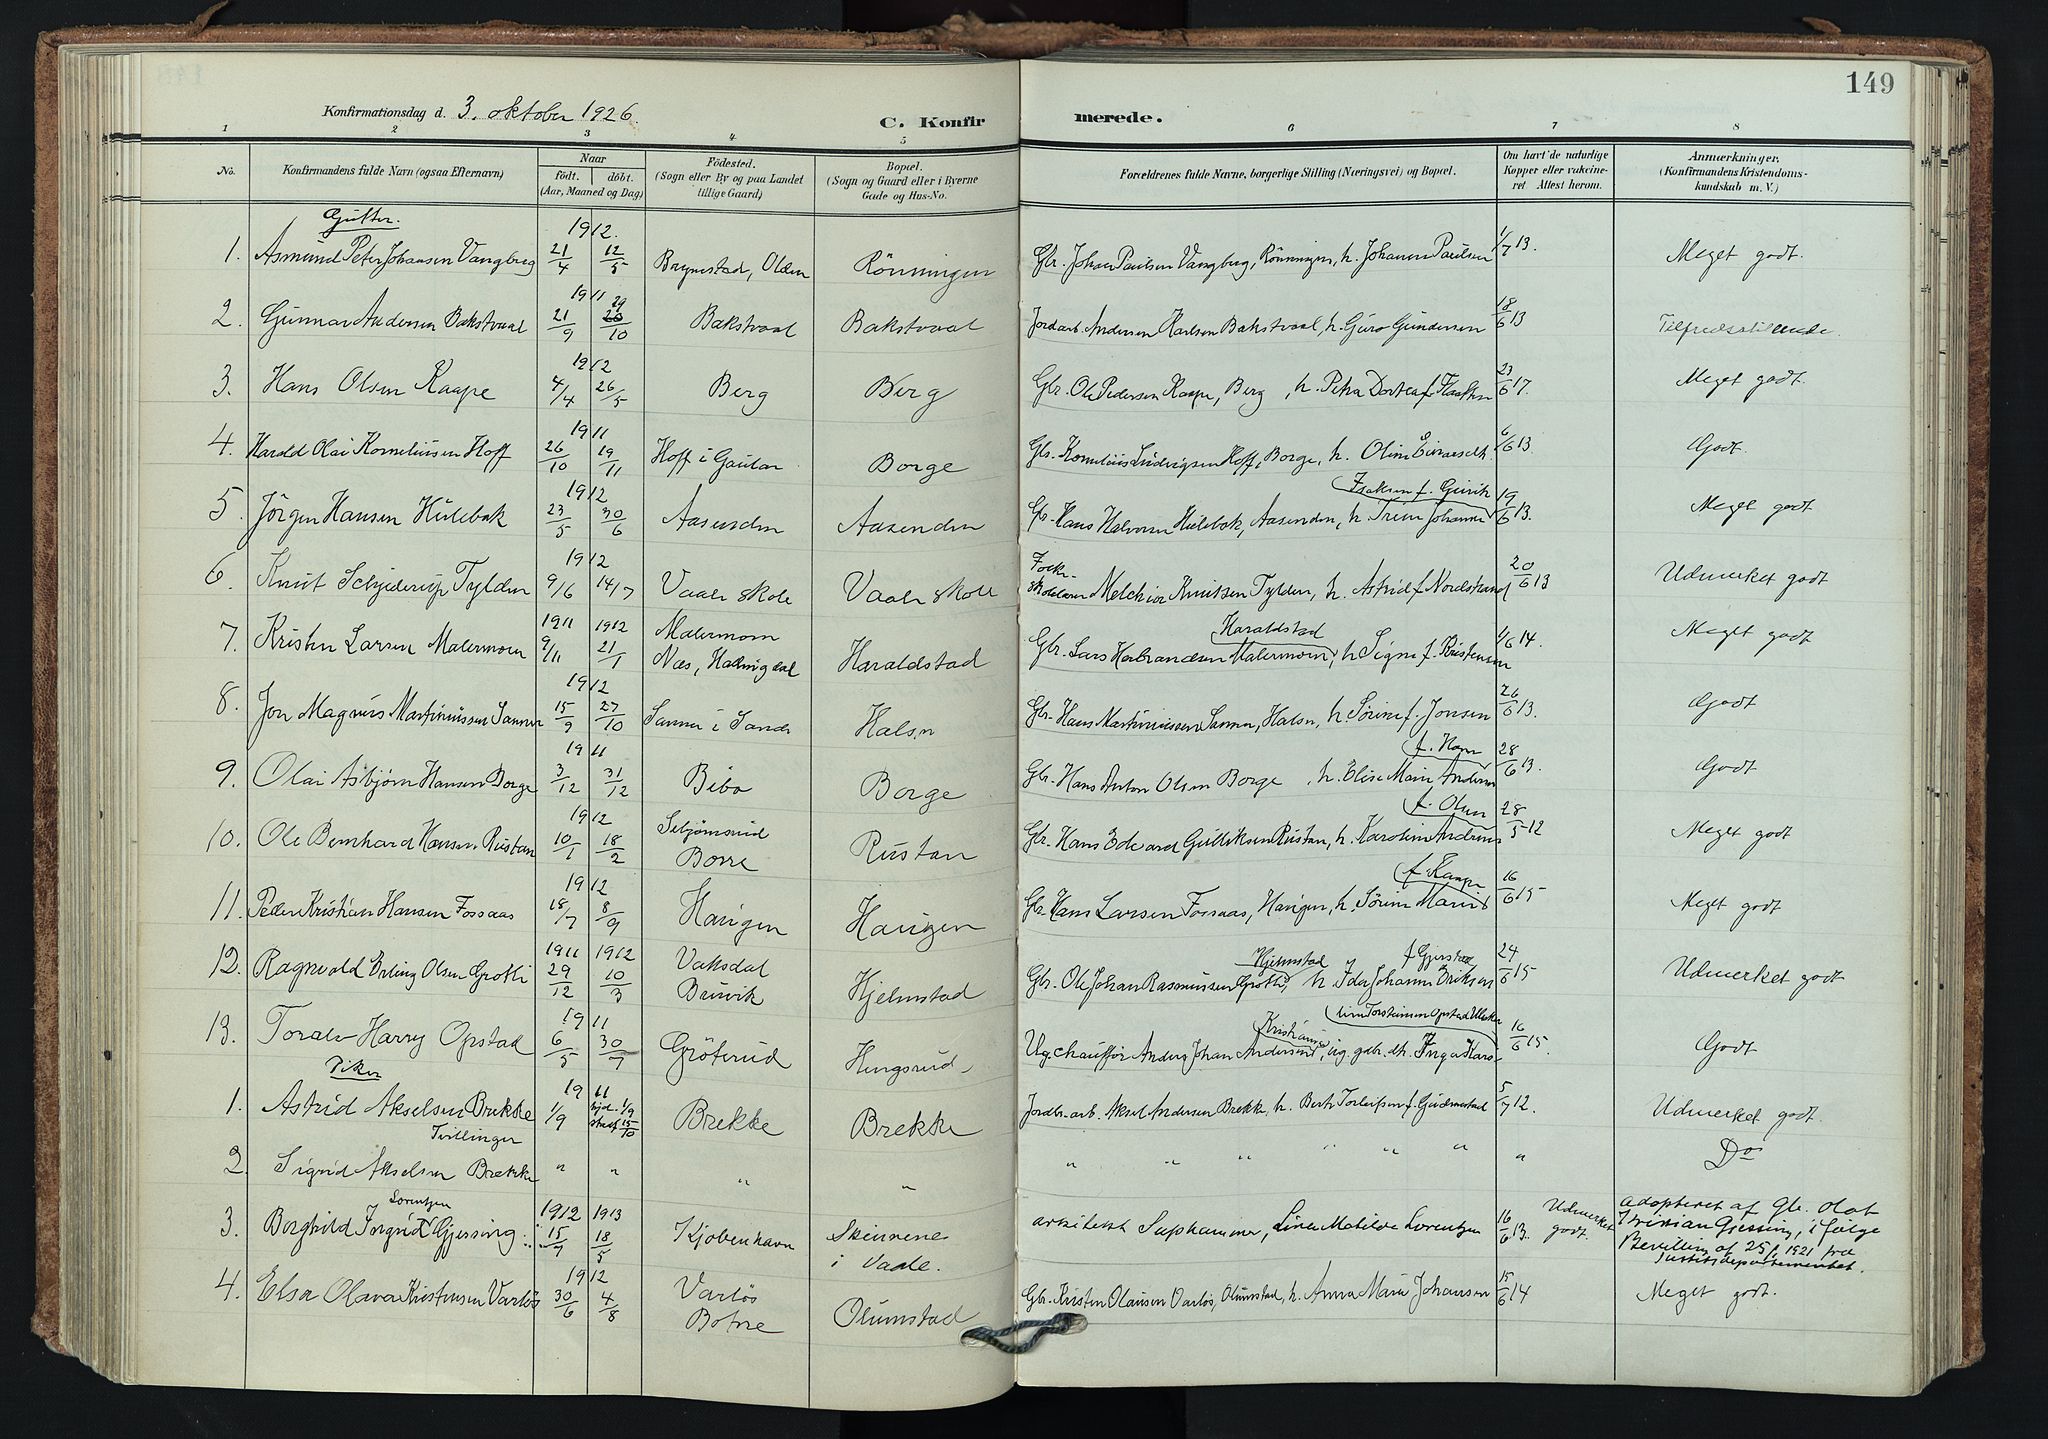 149
Konfirmationsdag d. 3. oktober 1926.
C. Konfirmerede.
1 2 3 4 5 6 7 8
No.
Konfirmandens fulde Navn (ogsaa Efternavn)
Naar
födt. döbt.
(Aar, Maaned og Dag)
Födested.
(Sogn eller By og paa Landet
tillige Gaard)
Bopæl.
(Sogn og Gaard eller i Byerne
Gade og Hus-No.
Forældrenes fulde Navne, borgerlige Stilling (Næringsvei) og Bopæl.
Om havt de naturlige
Kopper eller vakcine-
ret Attest herom.
Anmærkninger,
(Konfirmandens Kristendoms-
kundskab m. V.)
Gutter.
1. Asmund Peter Johansen Vangberg 1912. 21/4 12/5 Olden Rönningen Gbr. Johan Paulsen Vangberg, Rönningen, h. Johanne Paulsen 1/7 13. Meget godt.
2. Gunnar Andersen Bakstvaal 1911 21/9 29/10 Bakstvaal Bakstvaal Jordarb. Andersen Karlsen Bakstvaal, h. Guro Gundersen 18/6 13 Tilfredsstillende.
3. Hans Olsen Raape 1912 4/4 26/5 Berg Berg Gbr. Ole Pedersen Raape, Berg, h. Petra Dortea f. 23/6 17. Meget godt.
4. Harald Olai Korneliussen Hoff 1911 26/10 19/11 Hoff i Gaular Borge Gbr. Kornelius Ludvigsen Hoff, Borge, h. Oline 6/6 13. Godt.
5. Jörgen Hansen Hulebak 1912 23/5 30/6 Aasenden Aasenden Gbr. Hans Halvorsen Hulebak, Aasenden, h. Trine Johanne Isaksen f. 19/6 13. Meget godt
6. Knut Schjelderup Tylden 1912 9/6 14/7 Vaale skole Vaale skole Melchior Knutsen Tylden, h. Astrid f. Nordstrand 20/6 13 Udmerket godt
7. Kristen Larsen Malermoen 1911 9/11 1912 21/1 Malermoen Næs, Hallingdal Haraldstad Gbr. Lars Herbrandsen Malermoen, Haraldstad h. Signe f. Kristensen 1/6 14. Meget godt
8. Jon Magnus Martiniussen Sanner 1912 15/9 27/10 Sanner i Sande Halsn Gbr. Hans Martiniussen Sanner, Halsn, h. Sörine f. Jonsen 26/6 13. Godt
9. Olai Asbjörn Hansen Borge 1911 3/12 31/12 Bibo Borge Gbr. Hans Anton Olsen Borge, h. Elise Marie Andersen 28/6 13. Godt
10. Ole Bernhard Hansen Rustan 1912 10/1 18/2 Borre Rustan Gbr. Hans Edvard Gulliksen Rustan, h. Karoline Andrine f. Olsen 28/5 12 Meget godt
11. Peder Kristian Hansen Fossaas 1912 18/7 8/9 Haugen Haugen Gbr. Hans Larsen Fossaas, Haugen, h. Sörine Marie f. Raape 16/6 15 Meget godt
12. Ragnvald Erling Olsen Grotti 1911 29/12 1912 10/3 Vaksdal Bruvik Hjelmstad Gbr. Ole Johan Rasmussen Grotti, Hjelmstad h. Ida Johanne Eriksen f. Gjerstad 24/6 15 Udmerket godt
13. Toralv Harry Opstad 1911 6/5 30/7 Gröterud Hengsrud Ug. chauffør Anders Johan Andersen, Kristiania, ug. gdr. dt. Inga Karo-line Torsteinsen Opstad 16/6 15. Godt
Piker
1. Astrid Akselsen Brekke 1911 1/9 hjd. 1/9 stadf. 15/10 Brekke Brekke Jordbr.arb. Aksel Andersen Brekke, h. Berte Torleifsen f. Gudmestad 5/7 12. Udmerket godt.
Tvillinger
2. Sigrid Akselsen Brekke " " " " " " " " " " " " Do
3. Borghild Ingrid Lorentzen Gjessing 1912 15/7 1913 18/5 Kjøbenhavn Skinnene i Vaale. arkitekt Suphammer, Linea Matilde Lorentzen 16/6 13. Udmerket godt. adopteret af Gbr. Olaf
Kristian Gjessing, i følge
Bevilling af 25/ 1921 fra
Justitsdepartementet.
4. Elsa Olava Kristensen Varlös 1912 30/6 4/8 Varlös Botne Olumstad Gbr. Kristen Olausen Varlös, Olumstad, h. Anna Marie Johansen 15/6 14 Meget godt.